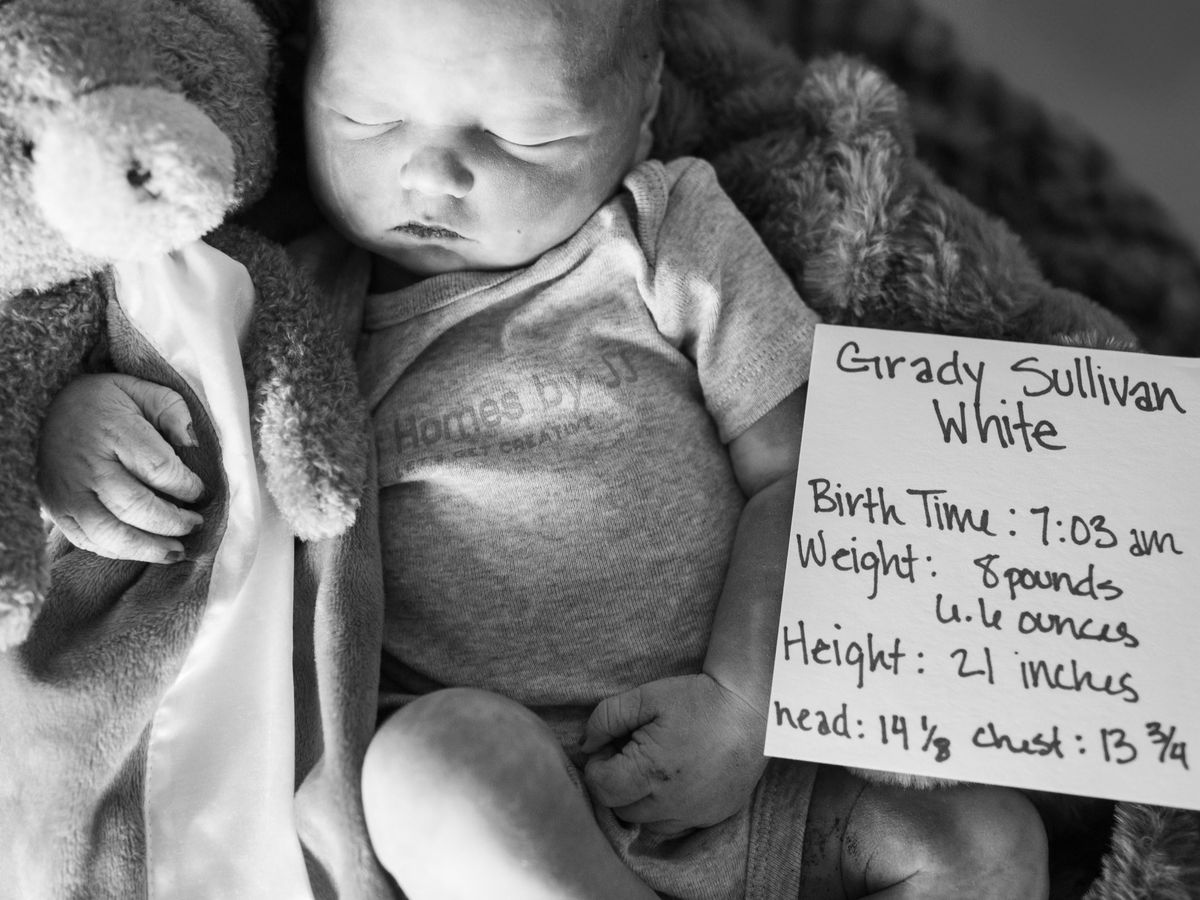 Homes by JJ
GET CREATIVE
Grady Sullivan
White
Birth Time: 7:03 am
Weight: 8 pounds
6.6 ounces
Height: 21 inches
head: 14 1/8 chest: 13 3/4